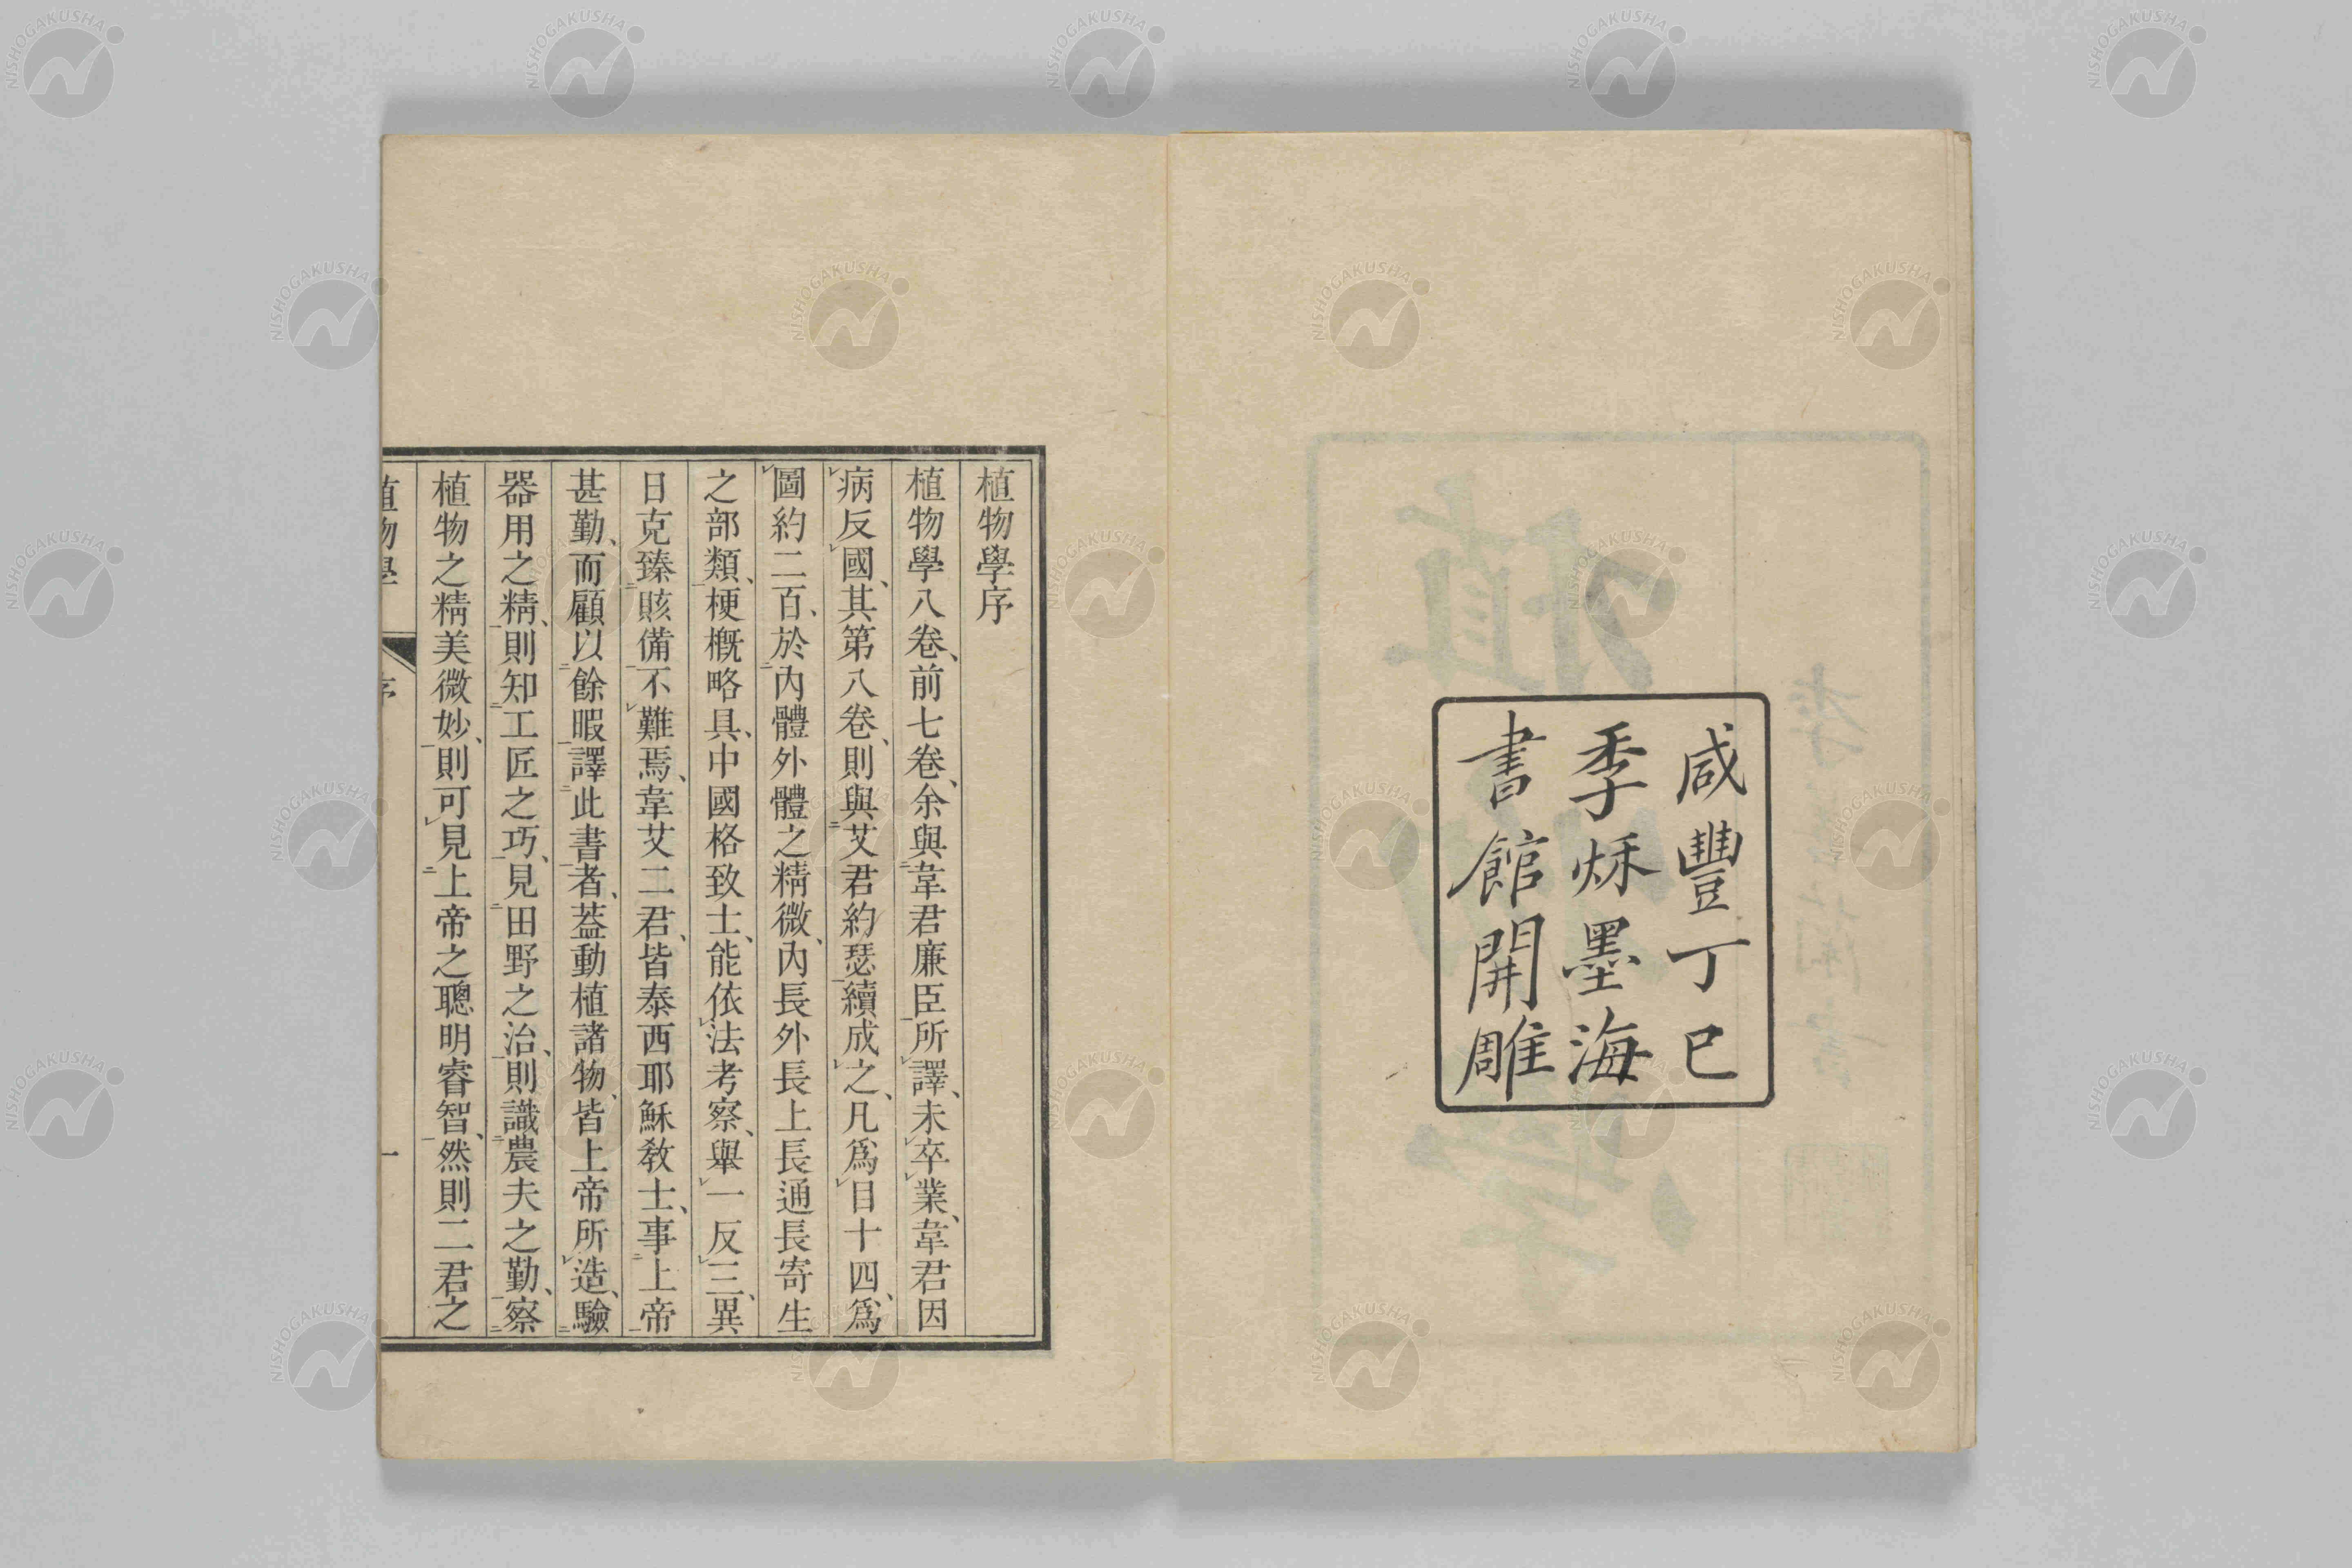 咸豐丁巳
季秌墨海
書館開雕
植物學序
植物學八卷、前七卷、余與韋君廉臣所譯、未卒業、韋君因
病反國、其第八卷、則與艾君約瑟續成之、凡爲目十四、爲
圖約二百、於內體外體之精微、內長外長上長通長寄生
之部類、梗概略具、中國格致士、能依法考察、舉一反三、異
日克臻賅備不難焉、韋艾二君、皆泰西耶穌教士、事上帝
甚勤、而顧以餘暇譯此書者、葢動植諸物、皆上帝所造、驗
器用之精、則知工匠之巧、見田野之治、則識農夫之勤、察
植物之精美微妙、則可見上帝之聰明睿智、然則二君之
植物學 序 一
NISHOGAKUSHA